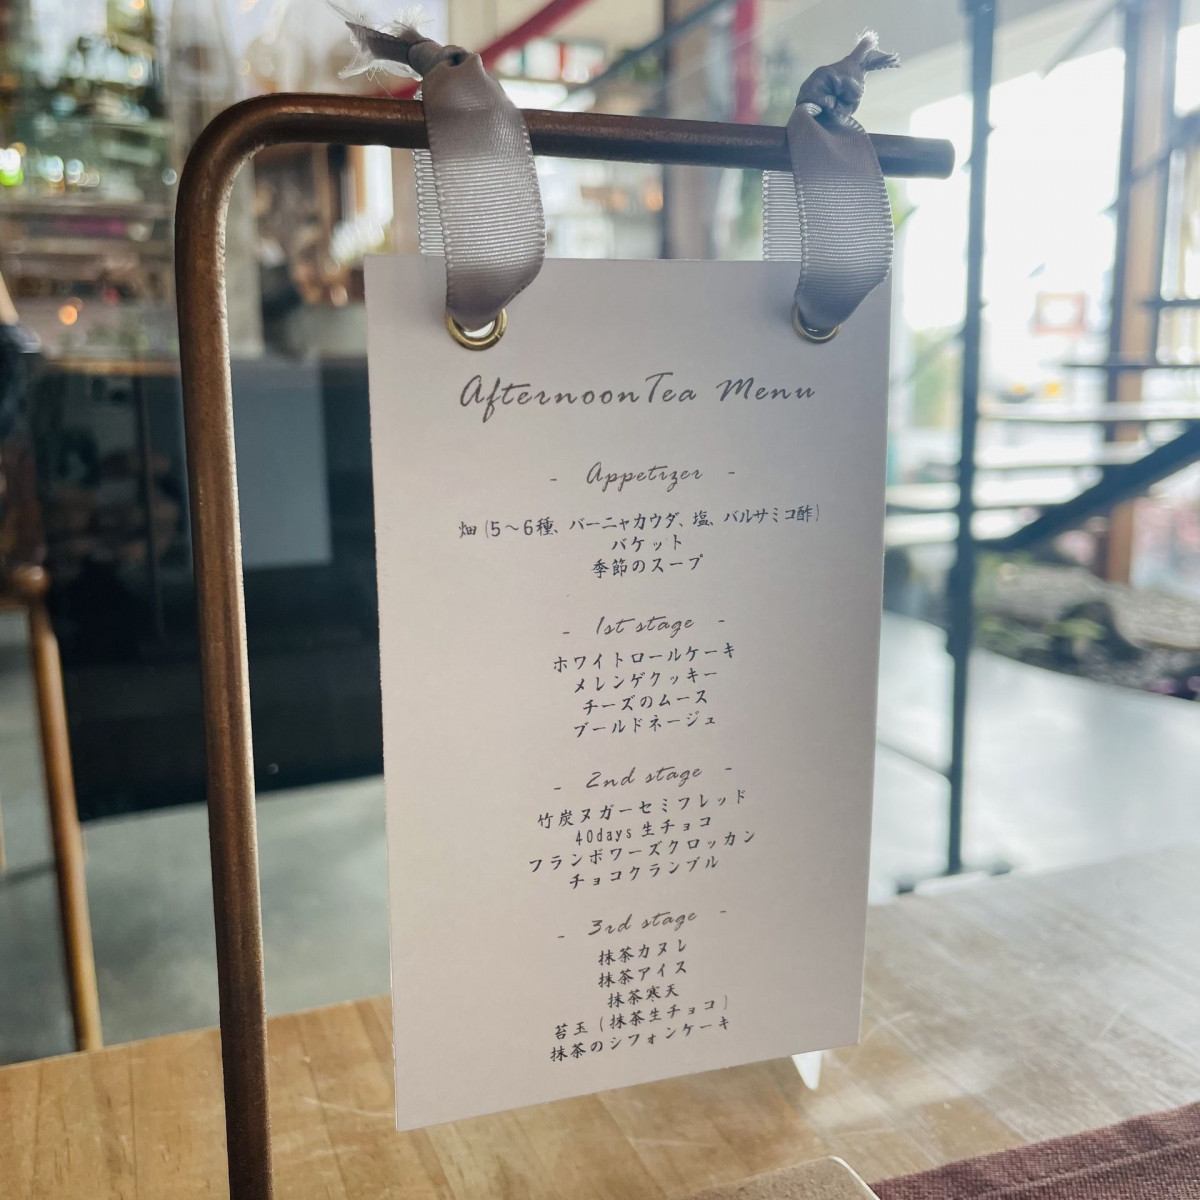 AfternoonTea Menu
- Appetizer -
畑(5～6種、バーニャカウダ、塩、バルサミコ酢)
バケット
季節のスープ
- 1st stage -
ホワイトロールケーキ
メレンゲクッキー
チーズのムース
ブールドネージュ
- 2nd stage -
竹炭ヌガーセミフレッド
40days生チョコ
フランボワーズクロッカン
チョコクランブル
- 3rd stage -
抹茶カヌレ
抹茶アイス
抹茶寒天
苔玉(抹茶生チョコ)
抹茶のシフォンケーキ